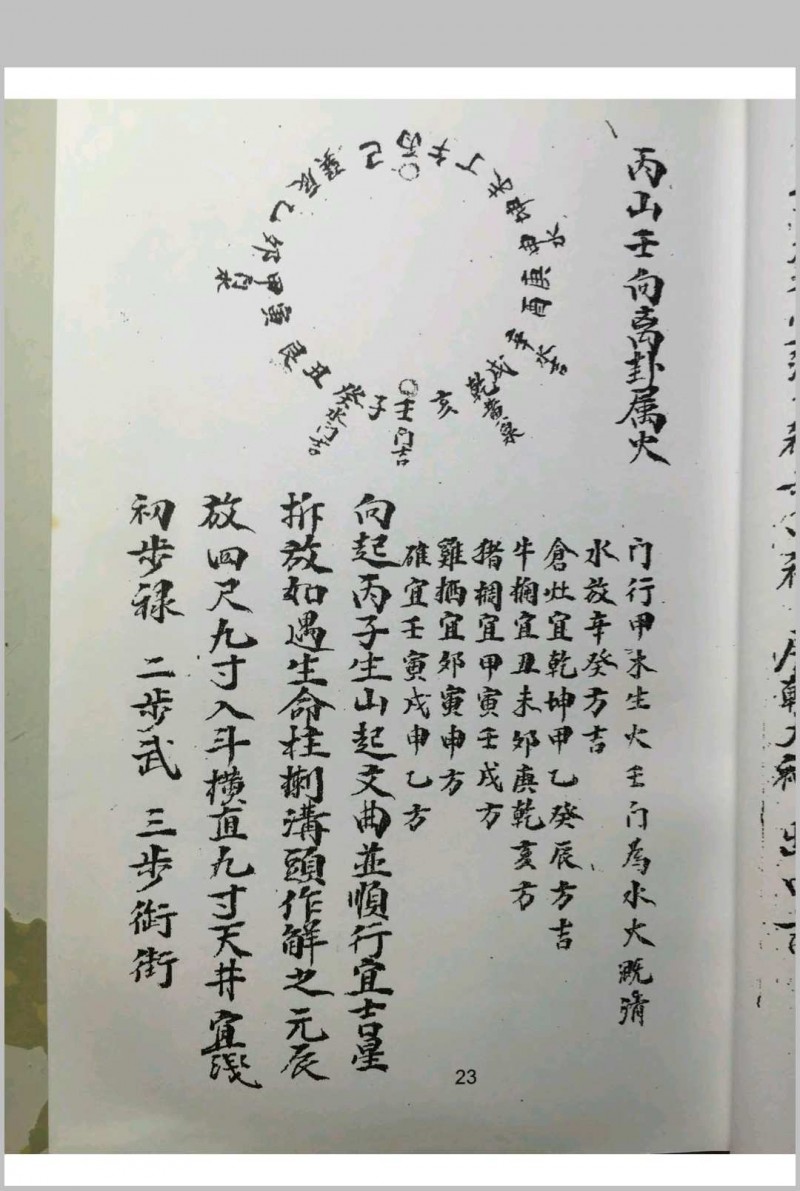 丙山壬向离卦属火
丙
午
丁
未
坤
申 水
庚
酉
辛 水吉
戌
乾 黄泉
亥
壬 门吉
子
癸 水门吉
丑
艮
寅
甲 门水
卯
乙
辰
巽
己
门行甲木生火壬门為水火既濟
水放辛癸方吉
倉灶宜乾坤甲乙癸辰方吉
牛椈宜丑未卯庚乾亥方
猪椆宜甲寅壬戌方
雞栖宜卯寅申方
碓宜壬寅戌申乙方
向起丙子生山起文曲並順行宜吉星
拆放如遇生命柱捌溝頭作解之元辰
放四尺九寸入斗横直九寸天井宜浅
初步禄 二步武 三步街街
23